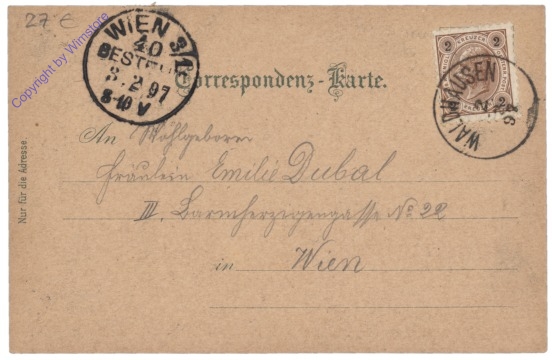 27 €
Copyright by Wimstore
WIEN 3/1
40
BESTELLT
3.2.97
8-10 V
Correspondenz-Karte.
2 2
WALDHAUSEN
2
97
Nur für die Adresse
An Wohlgeboren
Fräulein Emilie Dubal
III. Barmherzigengasse No. 22
in Wien